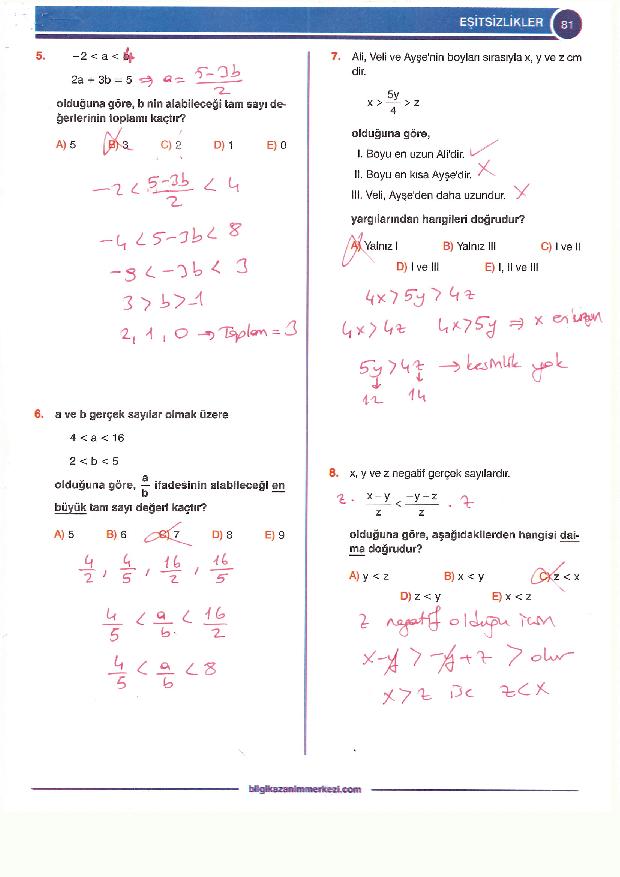 EŞİTSİZLİKLER 81
5. −2 < a < 4
2a + 3b = 5 ⇒ a = 5-3b/2
olduğuna göre, b nin alabileceği tam sayı de-
ğerlerinin toplamı kaçtır?
A) 5 B) 3 C) 2 D) 1 E) 0
-2 < 5-3b/2 < 4
-4 < 5-3b < 8
-9 < -3b < 3
3 > b > -1
2, 1, 0 → Toplam = 3
6. a ve b gerçek sayılar olmak üzere
4 < a < 16
2 < b < 5
olduğuna göre, a/b ifadesinin alabileceği en
büyük tam sayı değeri kaçtır?
A) 5 B) 6 C) 7 D) 8 E) 9
4/2, 4/5, 16/2, 16/5
4/5 < a/b < 16/2
4/5 < a/b < 8
7. Ali, Veli ve Ayşe'nin boyları sırasıyla x, y ve z cm
dir.
x > 5y/4 > z
olduğuna göre,
I. Boyu en uzun Ali'dir.
II. Boyu en kısa Ayşe'dir.
III. Veli, Ayşe'den daha uzundur.
yargılarından hangileri doğrudur?
A) Yalnız I B) Yalnız III C) I ve II
D) I ve III E) I, II ve III
4x > 5y > 4z
4x > 4z 4x > 5y ⇒ x en uzun
5y > 4z → kesinlik yok
12 14
8. x, y ve z negatif gerçek sayılardır.
z. x−y/z < −y−z/z . z
olduğuna göre, aşağıdakilerden hangisi dai-
ma doğrudur?
A) y < z B) x < y C) z < x
D) z < y E) x < z
z negatif olduğu için
x-y > -y+z > olur
x > z ise z < x
bilgikazanimmerkezi.com